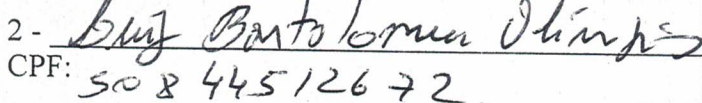 2 - Luiz Bartolomeu Olímpio
CPF: 508 445126 72